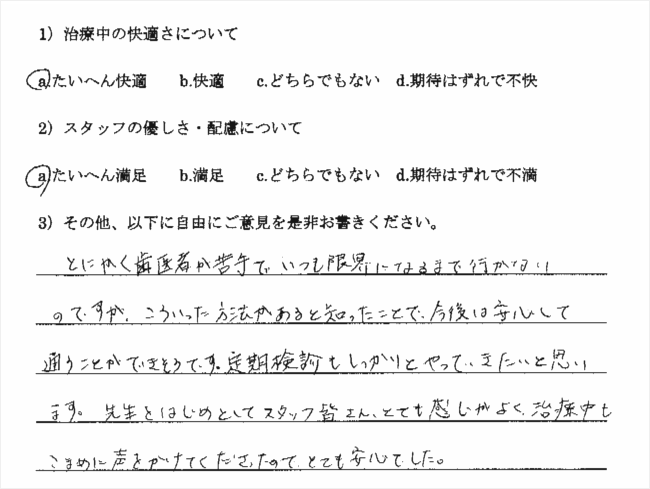 1）治療中の快適さについて
a.たいへん快適　b.快適　c.どちらでもない　d.期待はずれで不快
2）スタッフの優しさ・配慮について
a.たいへん満足　b.満足　c.どちらでもない　d.期待はずれで不満
3）その他、以下に自由にご意見を是非お書きください。
とにかく歯医者が苦手で、いつも限界になるまで行かない
のですが、こういった方法があると知ったことで、今後は安心して
通うことができそうです。定期検診もしっかりとやっていきたいと思い
ます。先生をはじめとしてスタッフ皆さん、とても感じがよく、治療中も
こまめに声をかけてくださったので、とても安心でした。